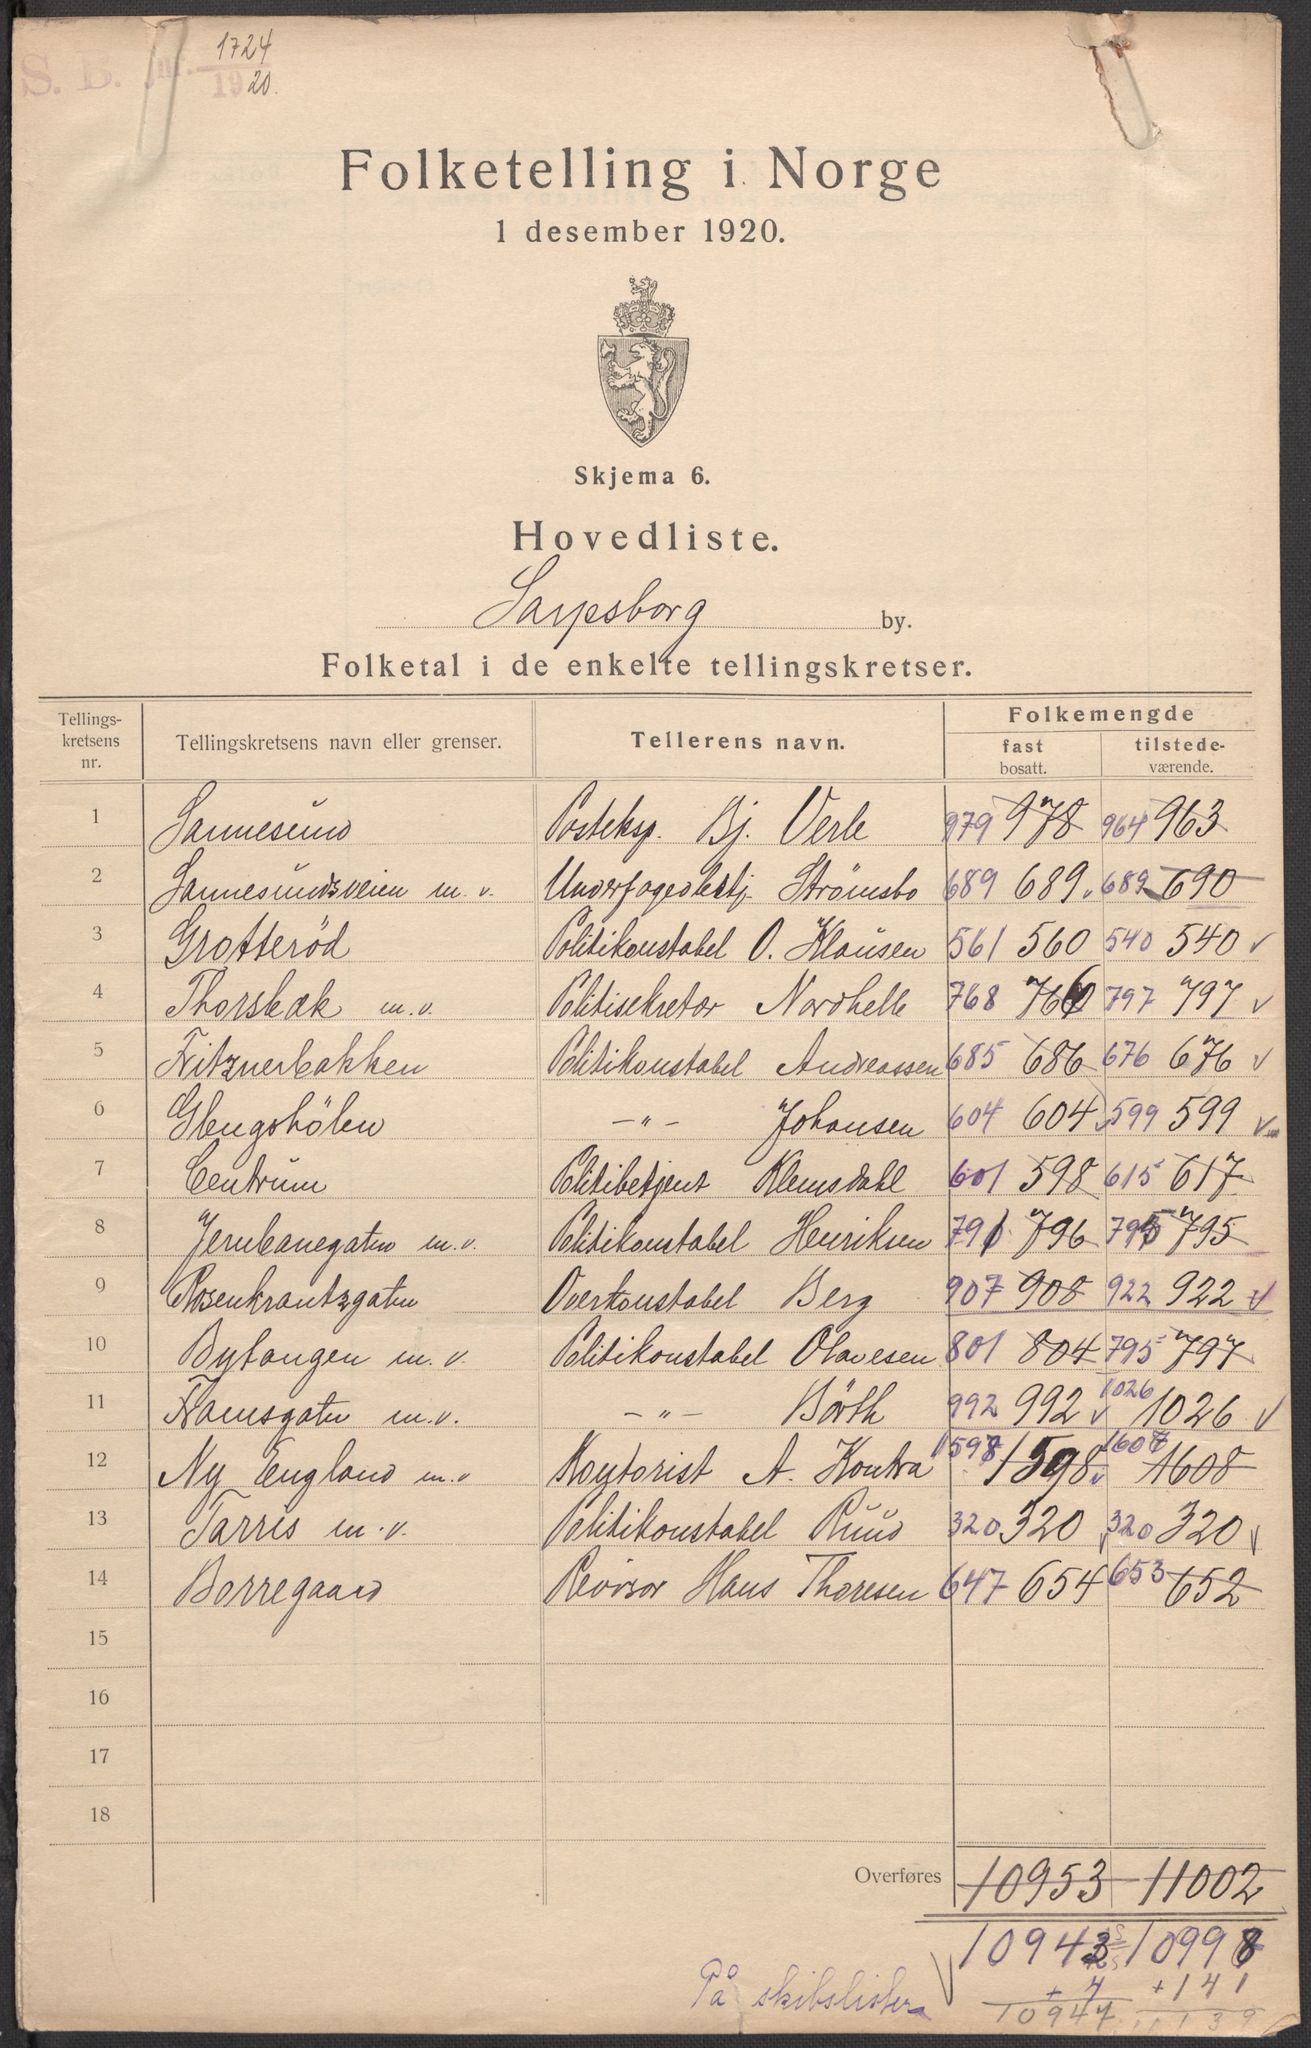 S. E. Jnr. 1724
1920.
Folketelling i Norge
1 desember 1920.
Skjema 6.
Hovedliste.
Sarpsborg by.
Folketal i de enkelte tellingskretser.
Tellings-kretsens nr. Tellingskretsens navn eller grenser. Tellerens navn. Folkemengde
fast bosatt. tilstede-værende.
1 Sannesund Posteksp. Bj. Verle 979 978 964 963
2 Sannesundsveien m. v. Underfogedbetj. Strömsbo 689 689 689 690
3 Grotterød Politikonstabel O. Klausen 561 560 540 540
4 Thorsbæk m.v. Politisekretær Nordhelle 768 766 797 797
5 Fritznerbakken Politikonstabel Andreassen 685 686 676 676
6 Glengshölen —"— Johansen 604 604 599 599
7 Centrum Politibetjent Klemsdahl 601 598 615 617
8 Jernbanegaten m.v. Politikonstabel Henriksen 791 796 795 795
9 Rosenkrantzgaten Overkonstabel Berg 907 908 922 922
10 Bytangen m. v. Politikonstabel Olavesen 801 804 795 797
11 Framsgaten m.v. —"— Börth 992 992 1026 1026
12 Ny England m.v Kontorist A. Kontra 1598 1598 1607 1608
13 Tarris m.v. Politikonstabel Ruud 320 320 320 320
14 Borregaard Revisor Hans Thoresen 647 654 653 652
15
16
17
18
Overføres 10953 11002
10943 10998
På skibslister + 4 + 141
10947 11139